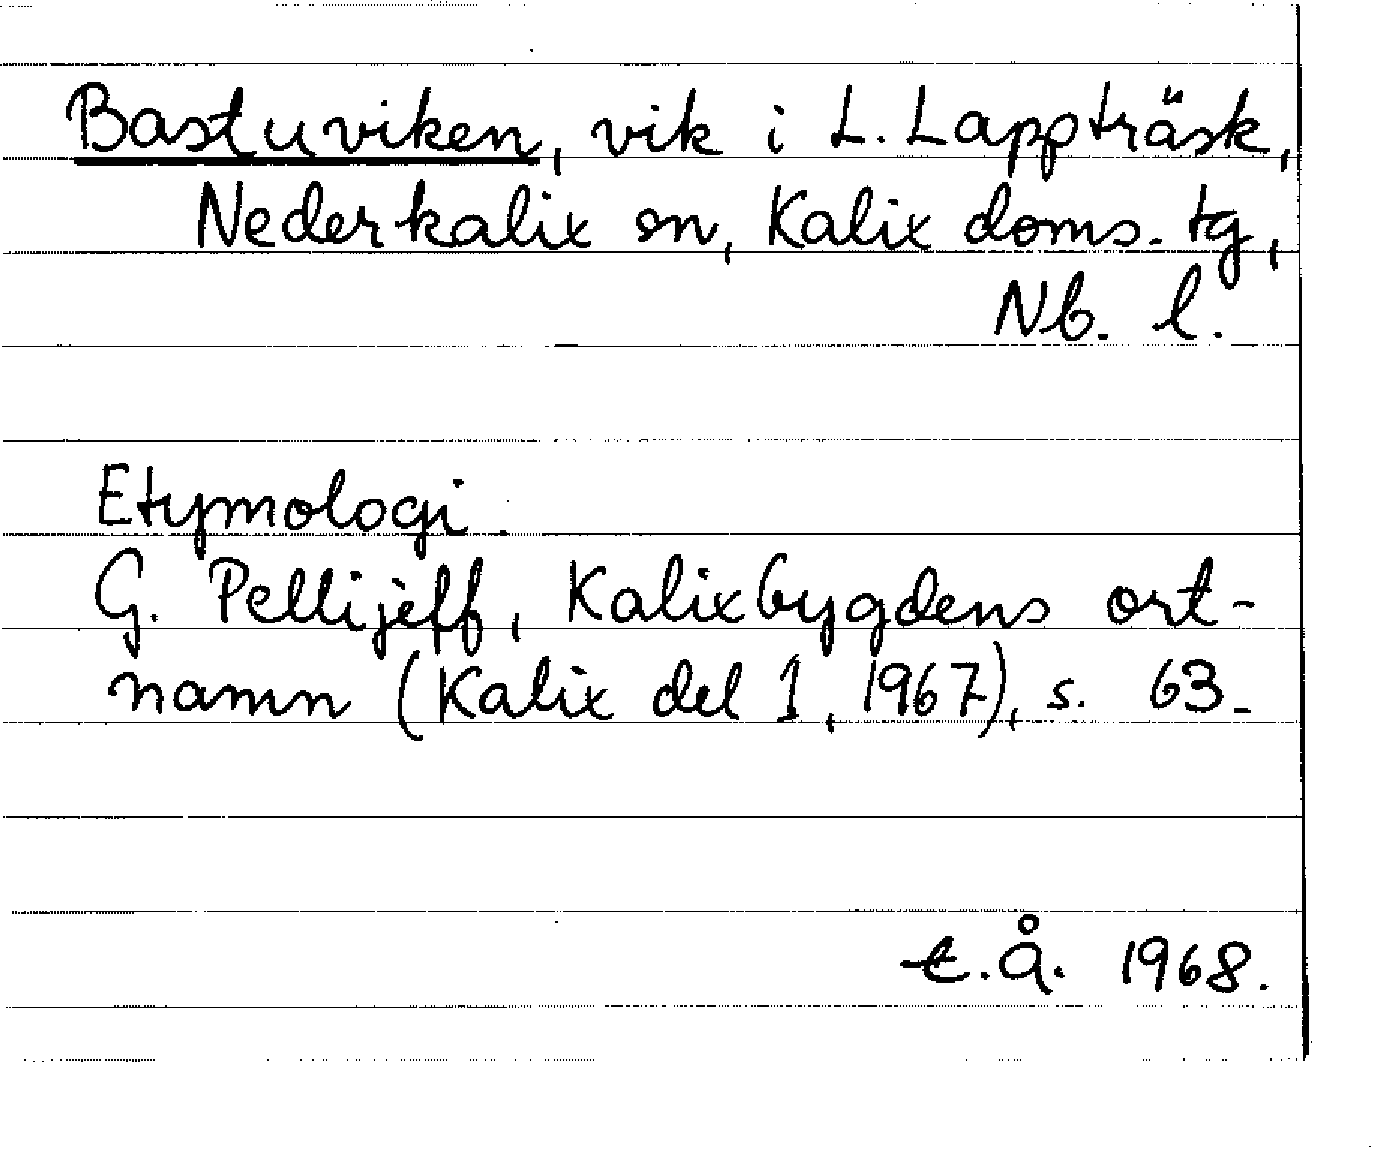 Bastuviken, vik i L. Lappträsk,
Nederkalix sn, Kalix doms. tg,
Nb. l.
Etymologi.
G. Pellijeff, Kalixbygdens ort-
namn (Kalix del 1, 1967), s. 63.
E.Å. 1968.